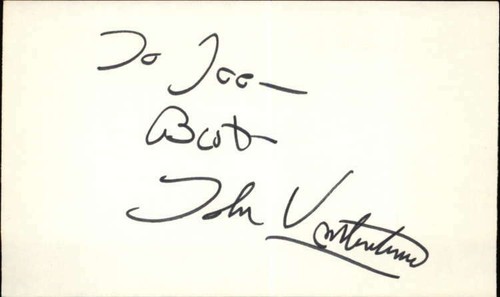 To Joe—
Best
John